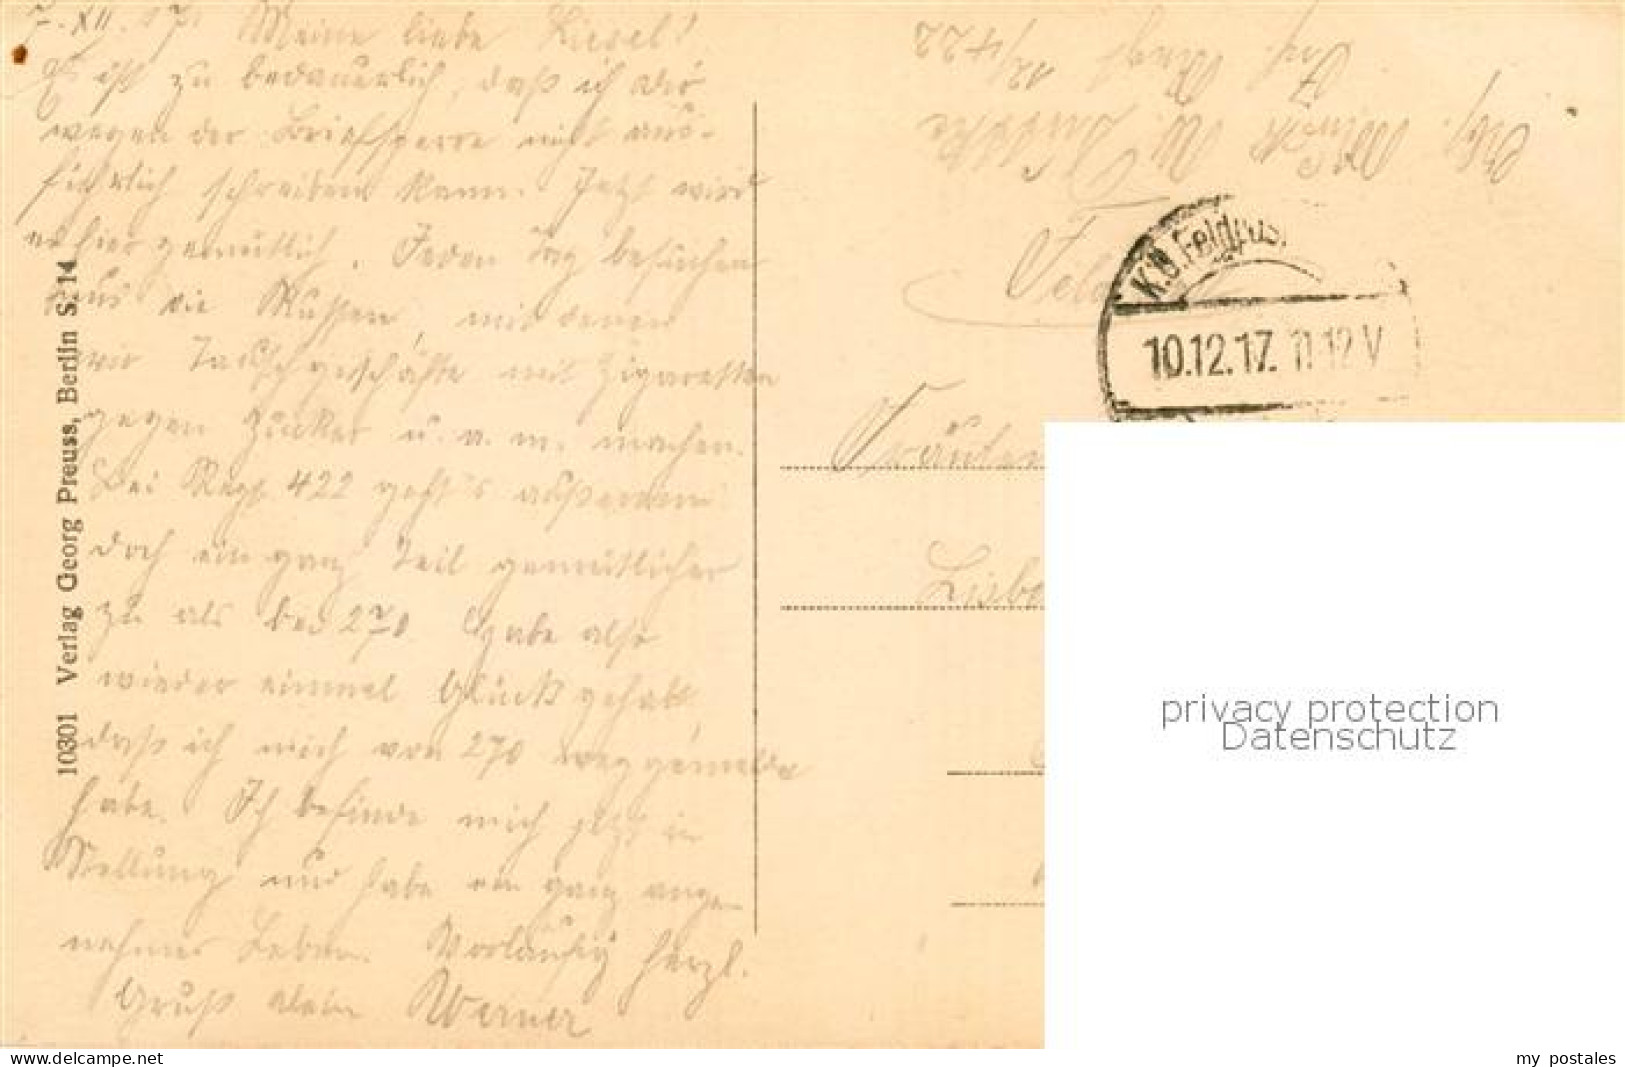 7. XII. 17. Meine liebe Liesel!
Es ist zu bedauerlich, daß ich dir
wegen der Briefsperre nicht aus-
führlich schreiben kann. Jetzt wird
es hier gemütlich. Jeden Tag besuchen
uns die Russen, mit denen
wir Tauschgeschäfte mit Zigaretten
gegen Zucker u. a. m. machen.
Bei Regt. 422 geht's außerdem
doch ein ganz Teil gemütlicher
zu als bei 270. Habe also
wieder einmal Glück gehabt,
daß ich mich von 270 weggemeldet
habe. Ich befinde mich jetzt in
Stellung und habe ein ganz ange-
nehmes Leben. Vorläufig herzl.
Gruß dein Werner
10301 Verlag Georg Preuss, Berlin S. 14
Abs. W.
Inf. Regt 422
12/422
Feld
K.D. Feldpos
10.12.17. 11-12 V
Fräulein
privacy protection
Datenschutz
www.delcampe.net
my postales